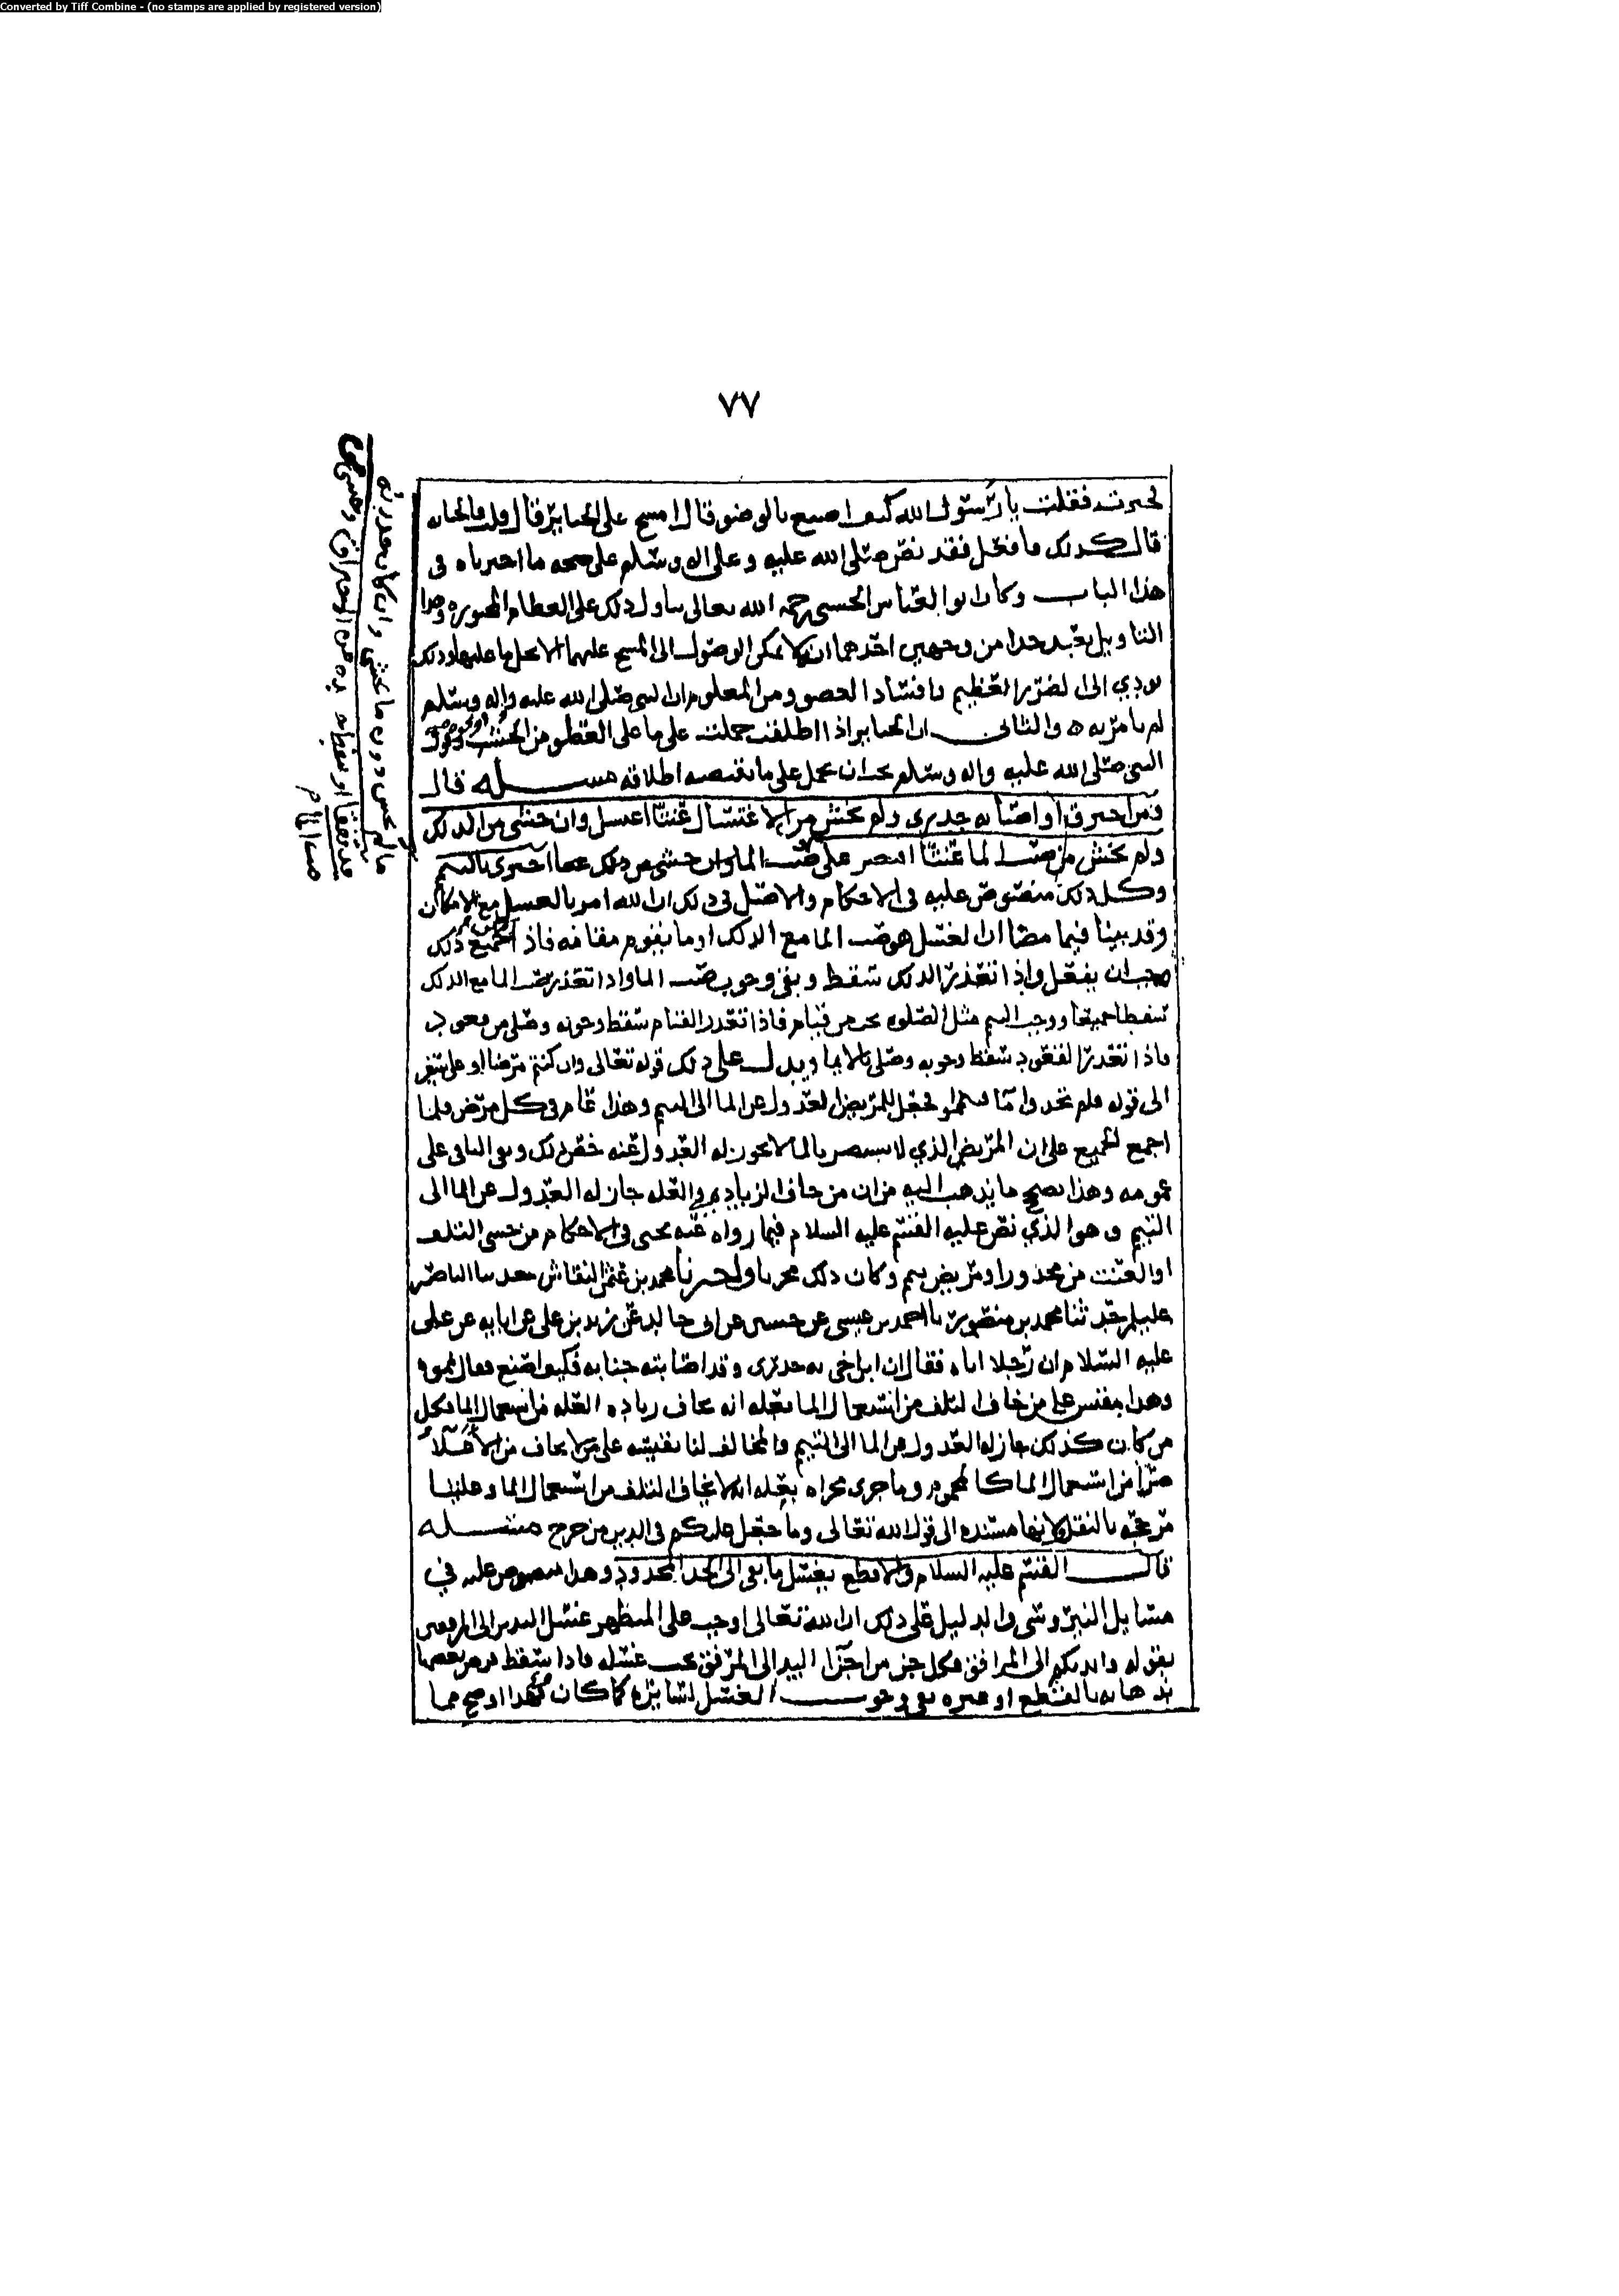 Converted by Tiff Combine - (no stamps are applied by registered version)
٧٧
فقلت يا رسول الله كيف اصنع بالوضو قال امسح على الجباير قال قلت فالجنابه
قال كذلك فافعل فقد نص صلى الله عليه وعلى اله وسلم على صحه ما اخترناه في
هذا الباب وكان ابو العباس الحسني رحمه الله تعالى يتاول ذلك على العظام المجبوره وهذا
التاويل بعيد جدا من وجهين احدهما ان لا يمكن الوصول الى المسح عليها الا بحل ما عليها وذلك
يودي الى الضرر العظيم وافساد العضو ومن المعلوم ان النبي صلى الله عليه واله وسلم
لم يامر به ه والثاني ان الجباير اذا اطلقت حملت على ما على العظم من الخشب وقول
النبي صلى الله عليه واله وسلم يجب ان يحمل على ما يقتضيه اطلاقه مسله قال
ومن احترق او اصابه جدري ولم يخش من الاغتسال عنتا اغتسل وان خشي من الدلك
ولم يخش من صب الما عنتا اقتصر على صب الما وان خشي من ذلك اجتزى بالتيمم
وكل ذلك منصوص عليه في الاحكام والاصل في ذلك ان الله امر بالغسل مع الامكان
وقد بينا فيما مضا ان الغسل هو صب الما مع الدلك او ما يقوم مقامه فاذا جميع ذلك
وجب ان يفعل واذا تعذر الدلك سقط وبقي وجوب صب الما واذا تعذر صب الما مع الدلك
سقطا جميعا ووجب التيمم مثل الصلوه يجب من قيام فاذا تعذر القيام سقط وجوبه وصلى من قعود
فاذا تعذر القعود سقط وجوبه وصلى بالايما ويدل على ذلك قوله تعالى وان كنتم مرضا او على سفر
الى قوله فلم تجدوا ما فتيمموا فجعل للمريض العدول عن الما الى التيمم وهذا عام في كل مريض فلما
اجمع الجميع على ان المريض الذي لا يستضر بالما لا يجوز له العدول عنه خص ذلك وبقي الباقي على
عمومه وهذا يصحح ما يذهب اليه من ان من خاف الزياده في العله جاز له العدول عن الما الى
التيمم وهو الذي نص عليه القسم عليه السلام فيما رواه عنه يحيى في الاحكام من خشي التلف
او العنت من مجدور او مريض تيمم وكان ذلك مجزيا واخبرنا محمد بن عثمن النقاش حدثنا الناصر
عليلم حدثنا محمد بن منصور نا احمد بن عيسى عن حسين عن ابي خالد عن زيد بن علي عن ابايه عن علي
عليه السلام ان رجلا اتاه فقال ان ابن اخي به جدري وقد اصابته جنابه فكيف اصنع فقال يمموه
وهذا مقيس على من خاف التلف من استعمال الما بعله انه يخاف زياده العله من استعمال الما فكل
من كان كذلك جاز له العدول عن الما الى التيمم والمخالف لنا يقيسه على من لا يخاف من الاصلا
ضررا من استعمال الما كالمحموم وما جرى مجراه بعله انه لا يخاف التلف من استعمال الما وعلتنا
مرجحه بالنقل لانها مستنده الى قول الله تعالى وما جعل عليكم في الدين من حرج مسله
قال القسم عليه السلام والاقطع يغسل ما بقي الى الحد المحدود وهذا منصوص عليه في
مسايل النيروسي والدليل على ذلك ان الله تعالى اوجب على المتطهر غسل اليدين الى المرفقين
بقوله وايديكم الى المرافق فكل جز من اجزا اليد الى المرفق يجب غسله فاذا سقط فرض بعضها
بذهابه بالقطع او غيره بقي وجوب الغسل لسايره كما كان فهذا اوضح مما